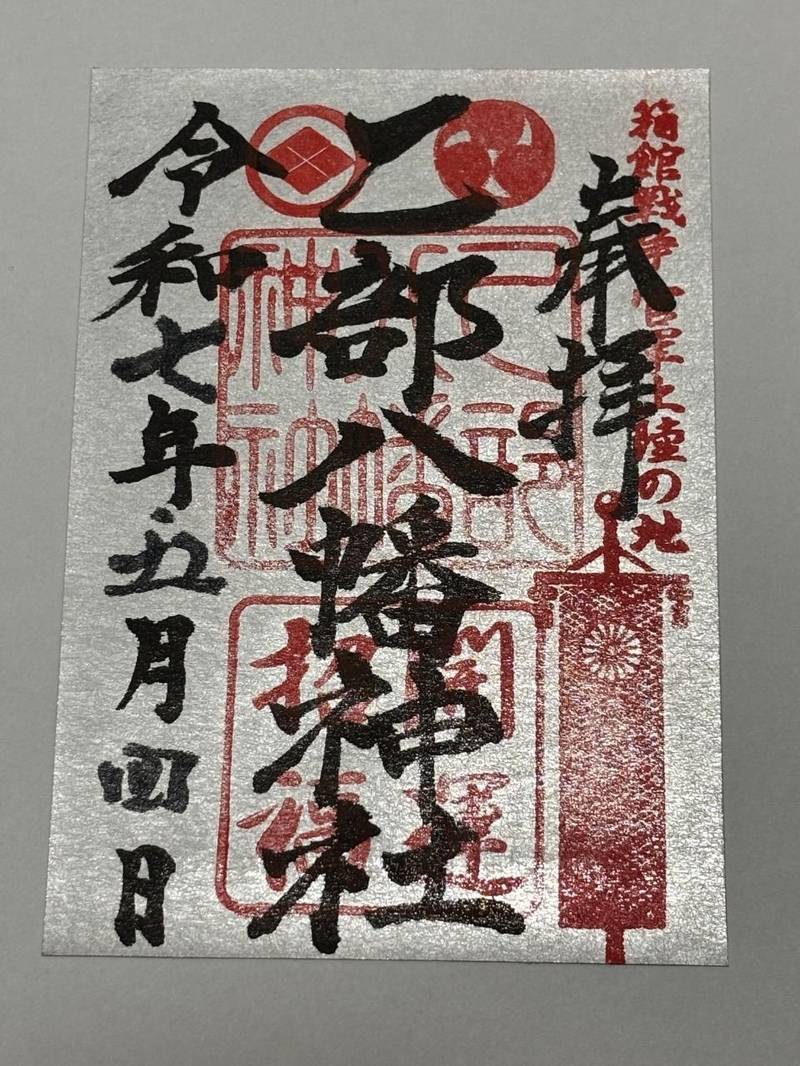 箱館戦争官軍上陸の地
奉拝
乙部八幡神社
乙部
八幡
神社
開運
招福
令和七年五月四日